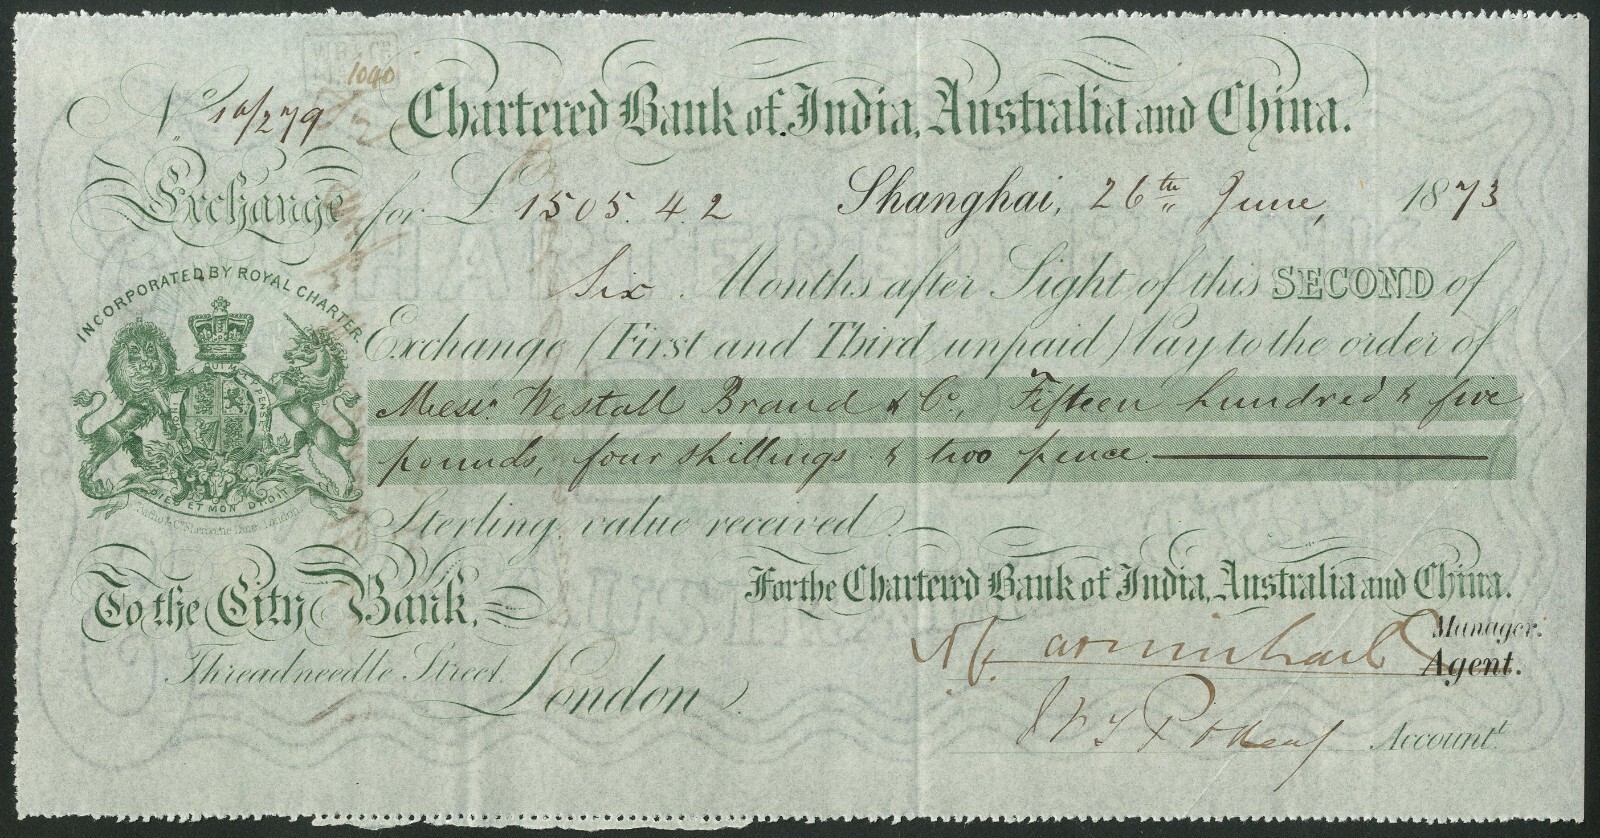 1040
No 10/279
Chartered Bank of India, Australia and China.
Exchange for £ 1505.4.2 Shanghai, 26th June, 1873
Six Months after Sight of this SECOND of
Exchange (First and Third unpaid) Pay to the order of
Messrs Westall Brand & Co, Fifteen hundred & five
pounds, four shillings & two pence.
Sterling, value received.
INCORPORATED BY ROYAL CHARTER
HONI SOIT QUI MAL Y PENSE
DIEU ET MON DROIT
London
To the City Bank,
Threadneedle Street,
London.
For the Chartered Bank of India, Australia and China.
Manager.
Agent.
Accountt